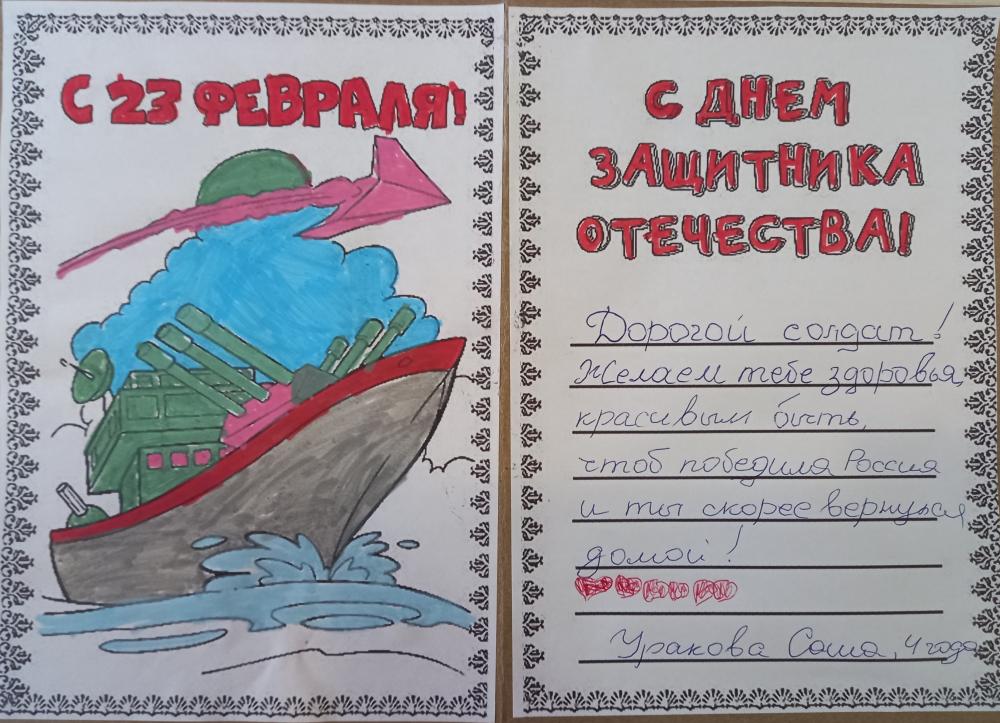 С 23 ФЕВРАЛЯ!
С ДНЕМ
ЗАЩИТНИКА
ОТЕЧЕСТВА!
Дорогой солдат!
Желаем тебе здоровья,
красивым быть,
чтоб победила Россия
и ты скорее вернулся
домой!
Уракова Саша, 4 года